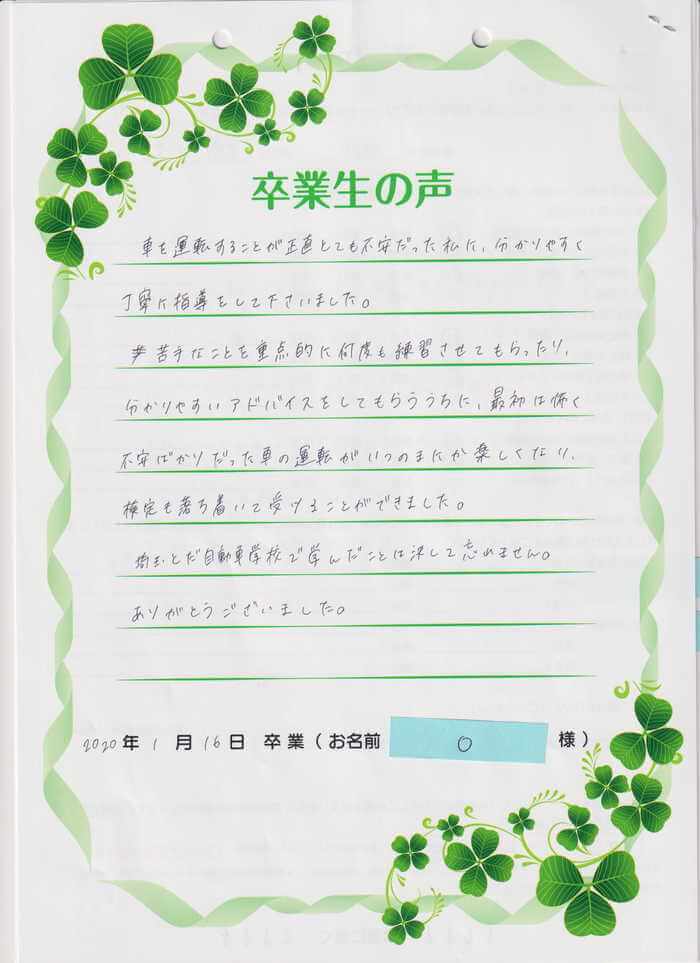 卒業生の声
車を運転することが正直とても不安だった私に、分かりやすく
丁寧に指導をして下さいました。
苦手なことを重点的に何度も練習させてもらったり、
分かりやすいアドバイスをしてもらううちに、最初は怖く
不安ばかりだった車の運転がいつのまにか楽しくなり、
検定も落ち着いて受けることができました。
埼玉とだ自動車学校で学んだことは決して忘れません。
ありがとうございました。
2020年 1月 16日 卒業(お名前 O 様)